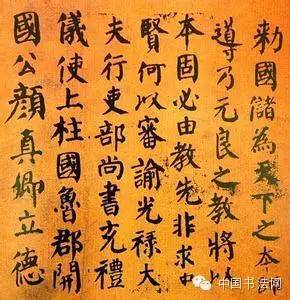 勑國儲為天下之本師
導乃元良之教將以
本固必由教先非求忠
賢何以審諭光禄大
夫行吏部尚書充禮
儀使上柱國魯郡開
國公顏真卿立德
中国书法网